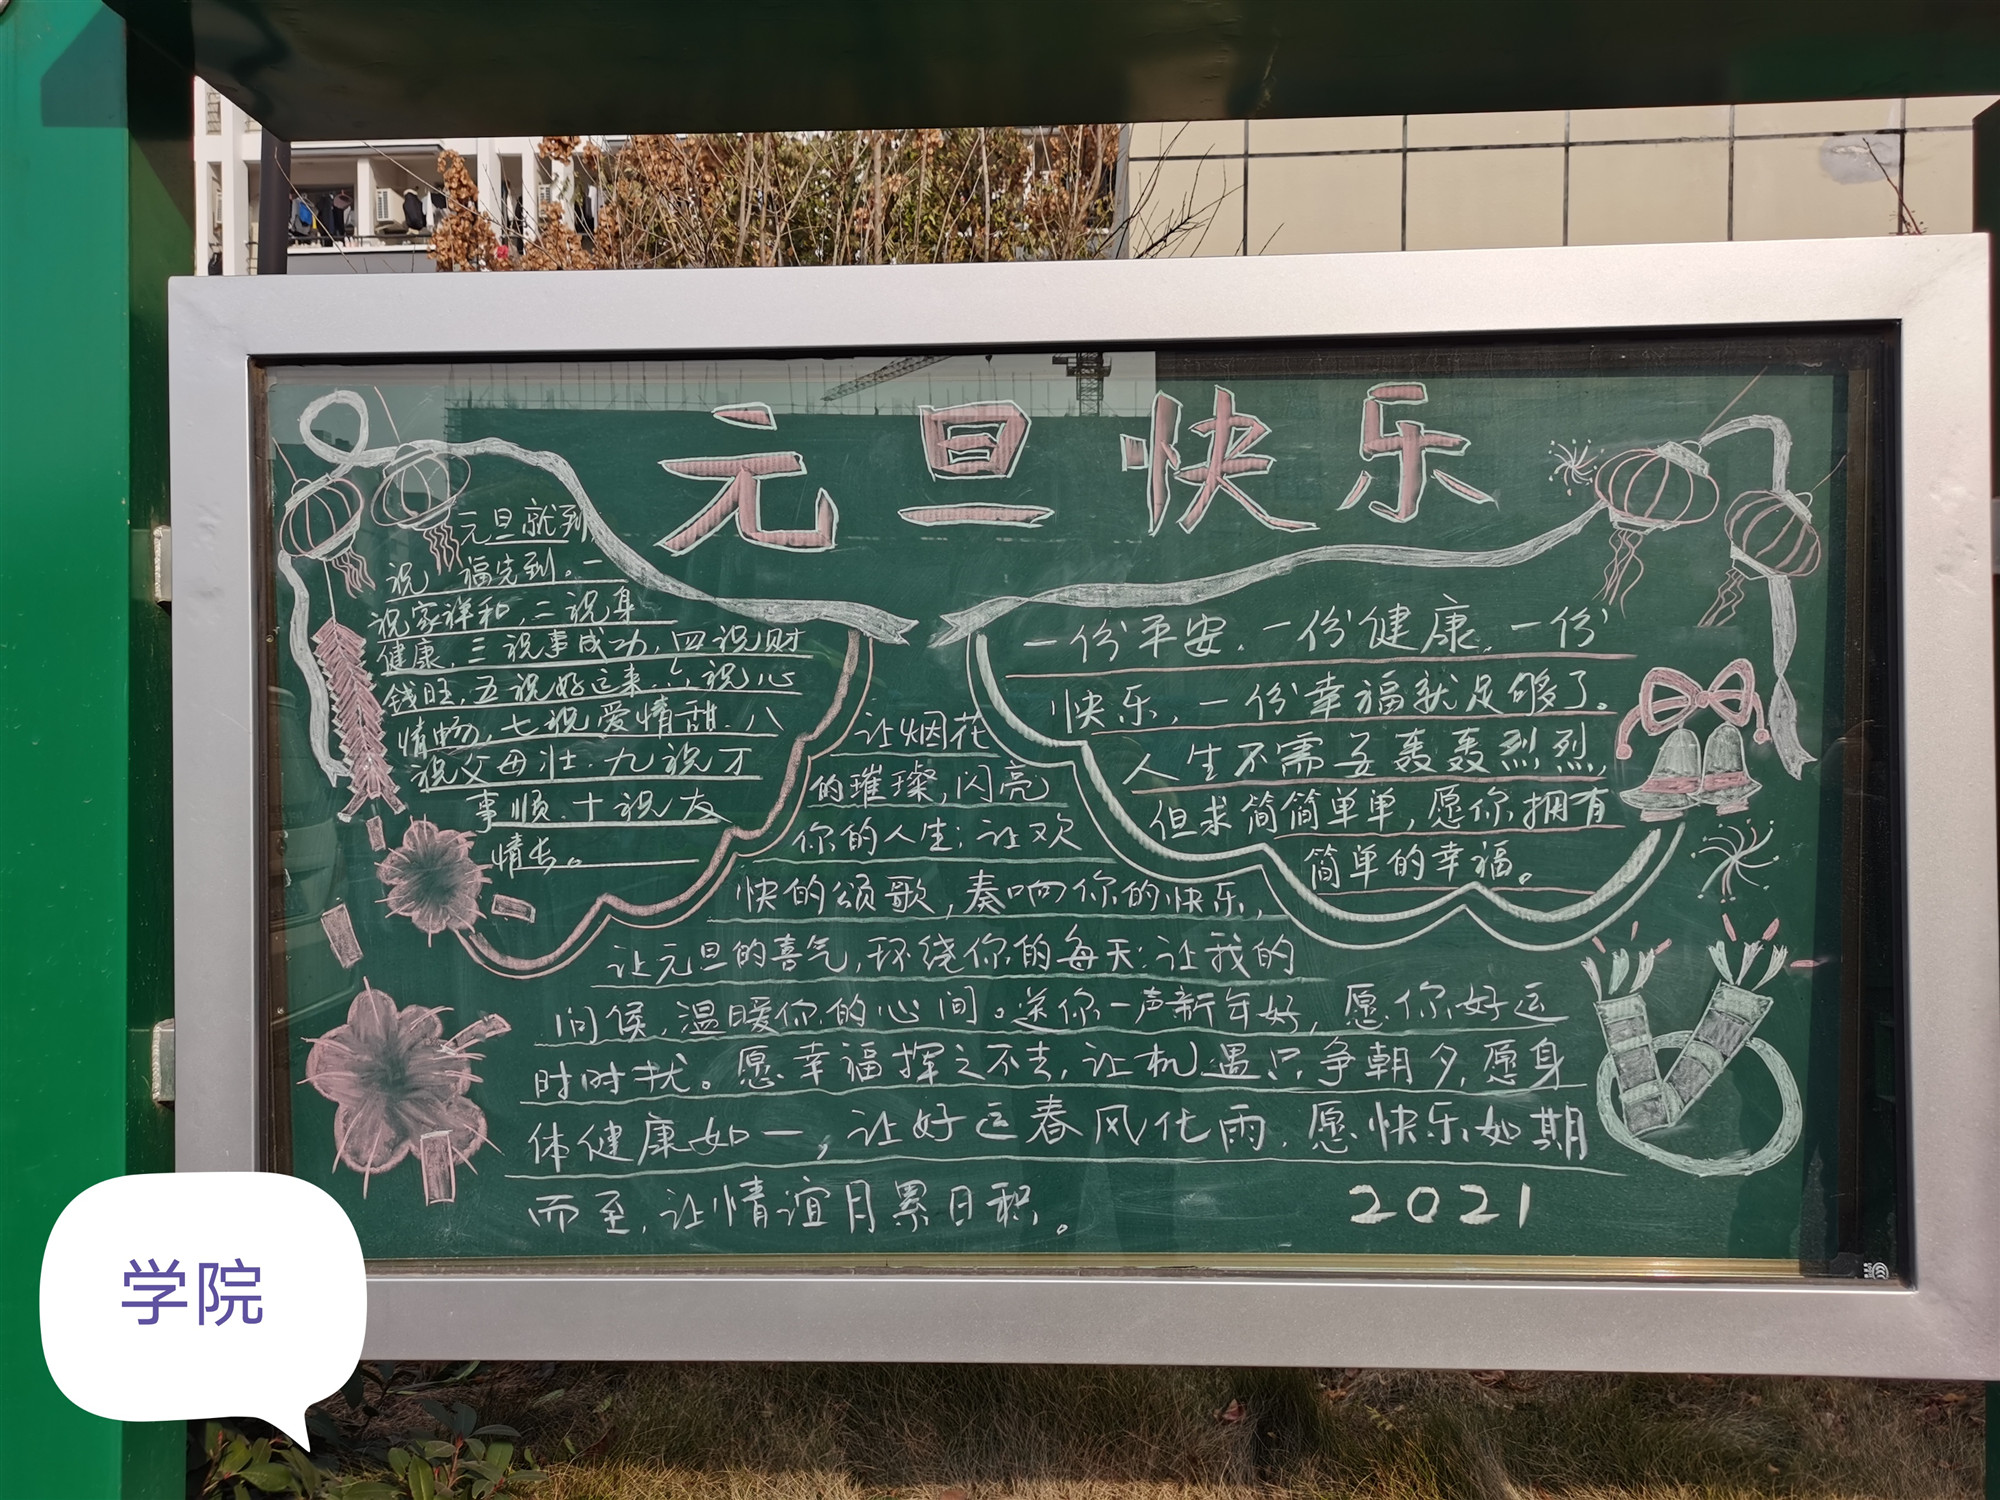 元旦快乐
元旦就到
祝 福先到。一
祝家祥和,二祝身
健康,三祝事成功,四祝财
钱旺,五祝好运来,六祝心
情畅,七祝爱情甜,八
祝父母壮,九祝才
事顺,十祝友
情长。
一份平安,一份健康,一份
快乐,一份幸福就足够了。
人生不需要轰轰烈烈,
但求简简单单,愿你拥有
简单的幸福。
让烟花
的璀璨,闪亮
你的人生;让欢
快的颂歌,奏响你的快乐,
让元旦的喜气,环绕你的每天;让我的
问候,温暖你的心间。送你一声新年好,愿你好运
时时扰。愿幸福挥之不去,让机遇只争朝夕,愿身
体健康如一,让好运春风化雨,愿快乐如期
而至,让情谊月累日积。
2021
学院